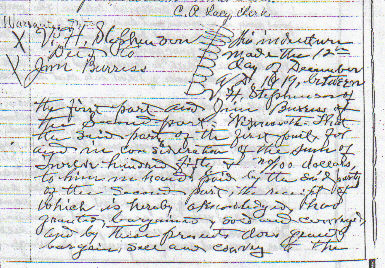 C. P. Lacy, Clerk
Warranty
X V. H. Stephenson This indenture
Deed To made the 12th
V Jim Burriss day of December
A.D. 1919, between
V. H. Stephenson of
the first part and Jim Burriss of
the second part, Witnesseth: That
the said party of the first part, for
and in consideration of the sum of
Twelve hundred fifty & no/100 dollars,
to him in hand paid by the said party
of the second part, the receipt of
which is hereby acknowledged, has
granted, bargained, sold and conveyed
and by these presents does grant
bargain, sell and convey of the